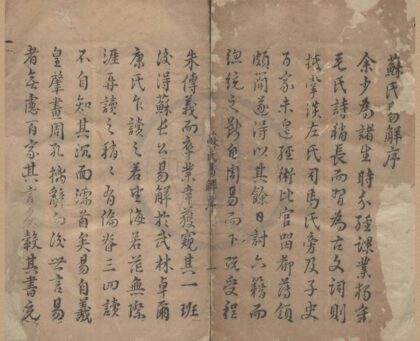 蘇氏易解序
余少為諸生時分經課業獨宗
毛氏詩稍長而習為古文詞則
抵掌談左氏司馬氏旁及子史
百家未遑經術比官留都簿領
頗簡遂得以其餘日討六籍而
總統之斷自周易而下既受程
蘇氏易解序
一
朱傳義而卒業幸獲窺其一班
後得蘇長公易解於武林卓爾
康氏乍讀之若望海若茫無際
涯再讀之稍稍有倫脊三四讀
不自知其沉而濡首矣易自羲
皇肇畫周孔辭而後世言易
者無慮百家其言數其書充